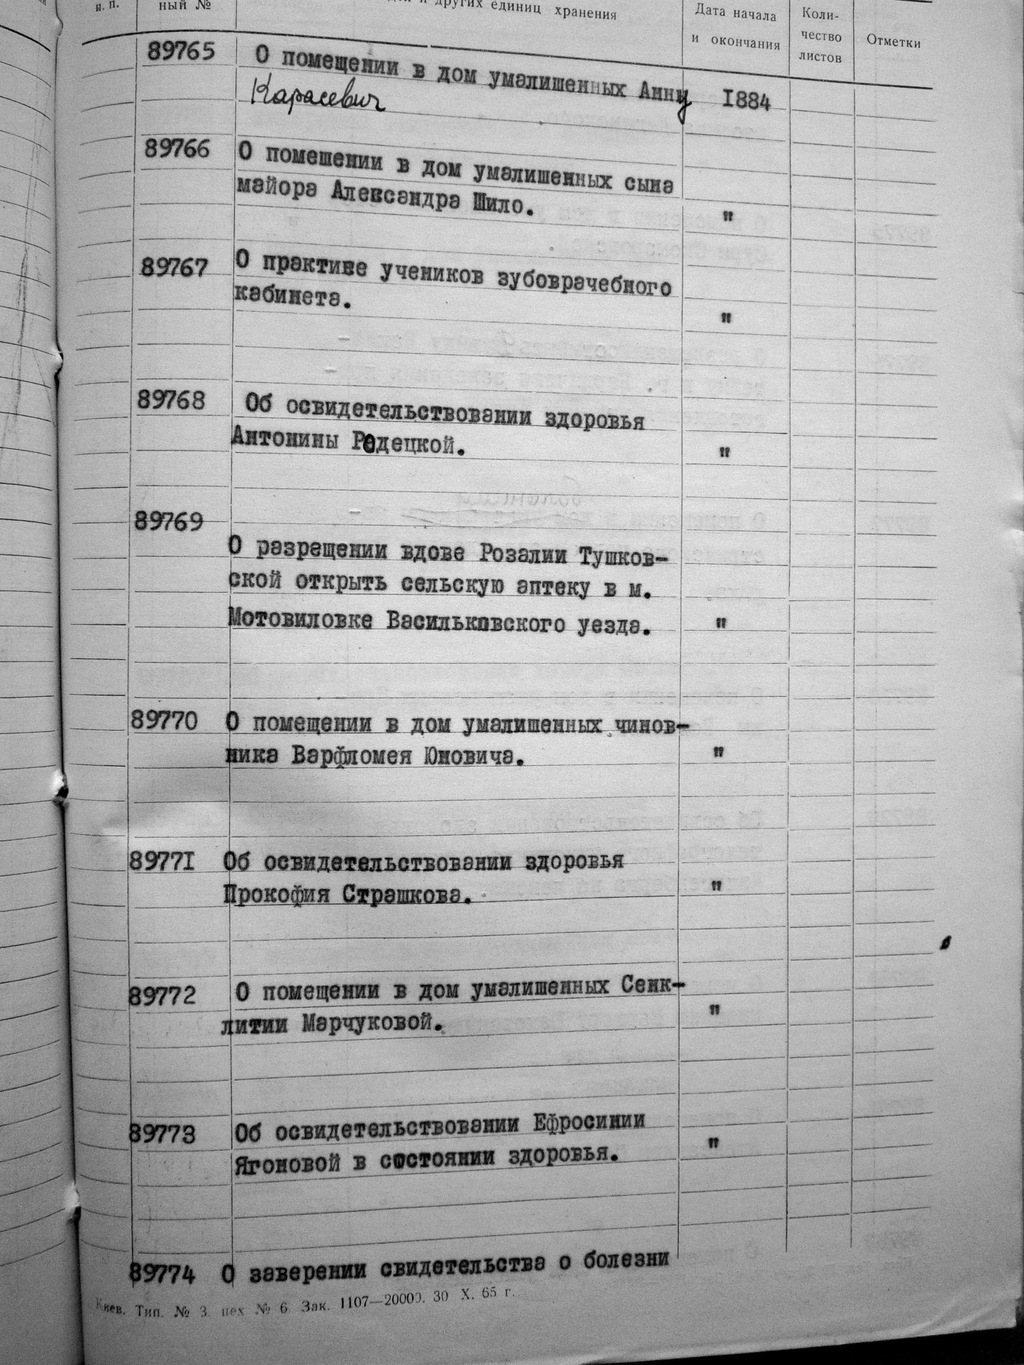 п. п.
ный №
и других единиц хранения
Дата начала
и окончания
Коли-
чество
листов
Отметки
89765 О помещении в дом умалишенных Анну 1884
Карасевич
89766 О помешении в дом умалишенных сына
майора Александра Шило. "
89767 О практике учеников зубоврачебного
кабинета. "
89768 Об освидетельствовании здоровья
Антонины Редецкой. "
89769
О разрещении вдове Розалии Тушков-
ской открыть сельскую аптеку в м.
Мотовиловке Васильковского уезда. "
89770 О помещении в дом умалишенных чинов-
ника Варфломея Юновича. "
89771 Об освидетельствовании здоровья
Прокофия Страшкова. "
89772 О помещении в дом умалишенных Сенк-
литии Марчуковой. "
89773 Об освидетельствовании Ефросинии
Ягоновой в состоянии здоровья. "
89774 О заверении свидетельства о болезни
Киев. Тип. № 3. цех № 6. Зак. 1107—20000. 30 X. 65 г.